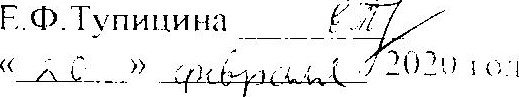 Е.Ф.Тупицина
«20» февраля 2020 год